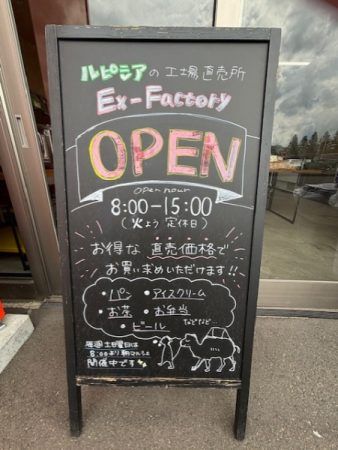 ルピシアの工場直売所
Ex-Factory
OPEN
open hour
8:00-15:00
(火よう定休日)
お得な直売価格で
お買い求めいただけます!!
・パン ・アイスクリーム
・お茶 ・お弁当
・ビール などなど…
毎週土日曜日は
8:00より朝マルシェ
開催中です